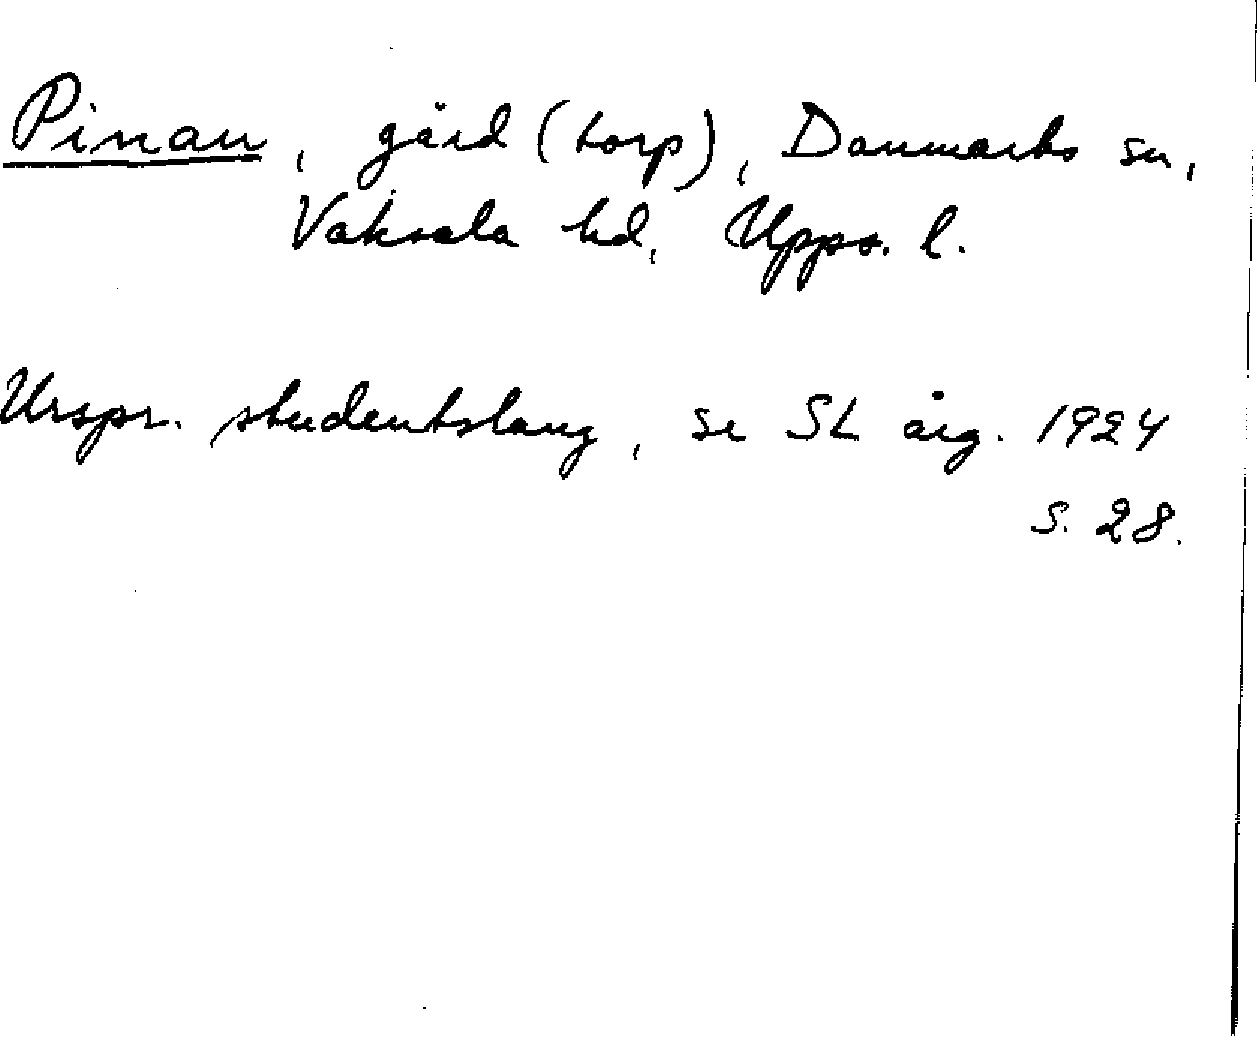 Pinan, gård (torp), Danmarks sn,
Vaksala hd, Upps. l.
Urspr. studentslang, se SL årg. 1924
s. 28.